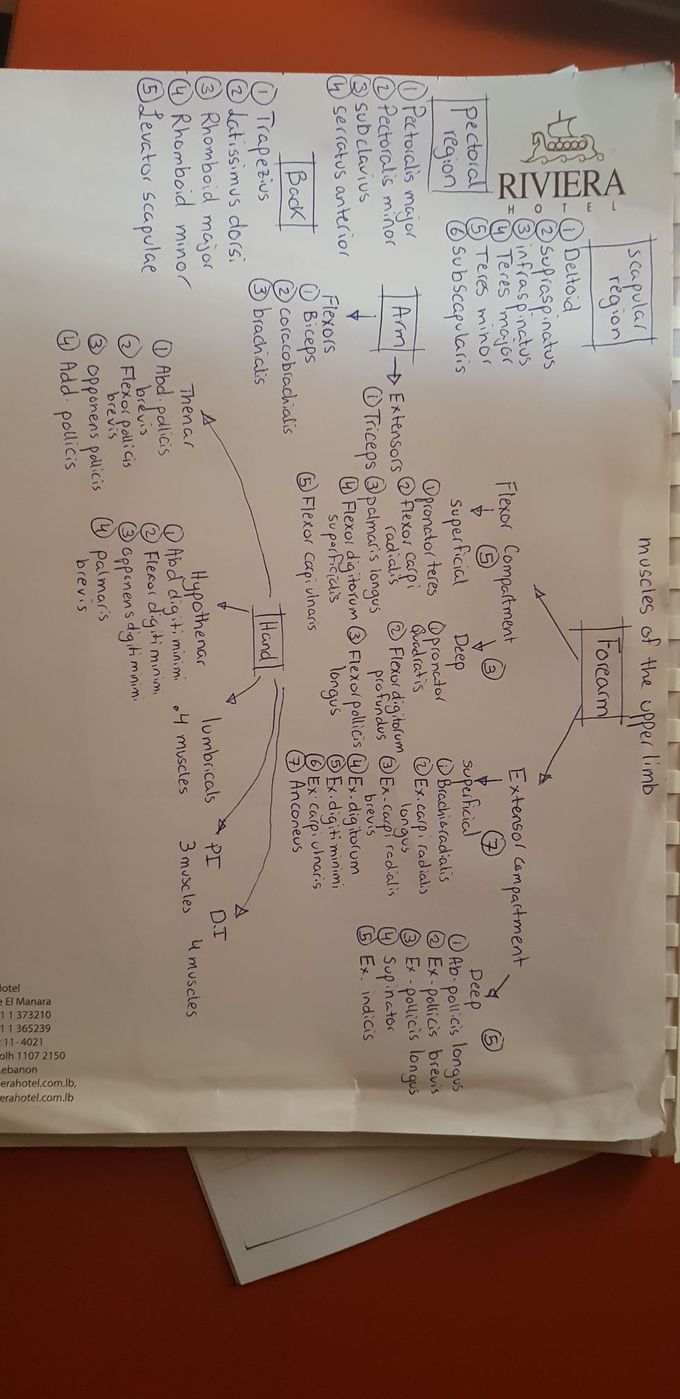 muscles of the upper limb
RIVIERA
HOTEL
scapular
region
① Deltoid
② supraspinatus
③ infraspinatus
④ Teres major
⑤ Teres minor
⑥ subscapularis
Pectoral
region
① Pectoralis major
② Pectoralis minor
③ subclavius
④ serratus anterior
Back
① Trapezius
② Latissimus dorsi
③ Rhomboid major
④ Rhomboid minor
⑤ Levator scapulae
Arm
Extensors
① Triceps
Flexors
① Biceps
② coracobrachialis
③ brachialis
Forearm
Flexor Compartment
⑤
superficial
① pronator teres
② flexor carpi
radialis
③ palmaris longus
④ Flexor digitorum
superficialis
⑤ Flexor carpi ulnaris
③
Deep
① pronator
quadratis
② Flexor digitorum
profundus
③ Flexor pollicis
longus
Extensor compartment
⑦
superficial
① Brachioradialis
② Ex. carpi radialis
longus
③ Ex. carpi radialis
brevis
④ Ex. digitorum
⑤ Ex. digiti minimi
⑥ Ex. carpi ulnaris
⑦ Anconeus
⑤
Deep
① Ab. pollicis longus
② Ex. pollicis brevis
③ Ex. pollicis longus
④ Supinator
⑤ Ex. indicis
Hand
Thenar
① Abd. pollicis
brevis
② Flexor pollicis
brevis
③ opponens pollicis
④ Add. pollicis
Hypothenar
① Abd digiti minimi
② Flexor digiti minimi
③ opponens digiti minimi
④ palmaris
brevis
lumbricals
. 4 muscles
PI
3 muscles
D.I
4 muscles
lotel
e El Manara
1 1 373210
1 1 365239
: 11- 4021
olh 1107 2150
ebanon
erahotel.com.lb,
erahotel.com.lb